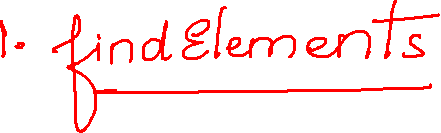 1. findElements